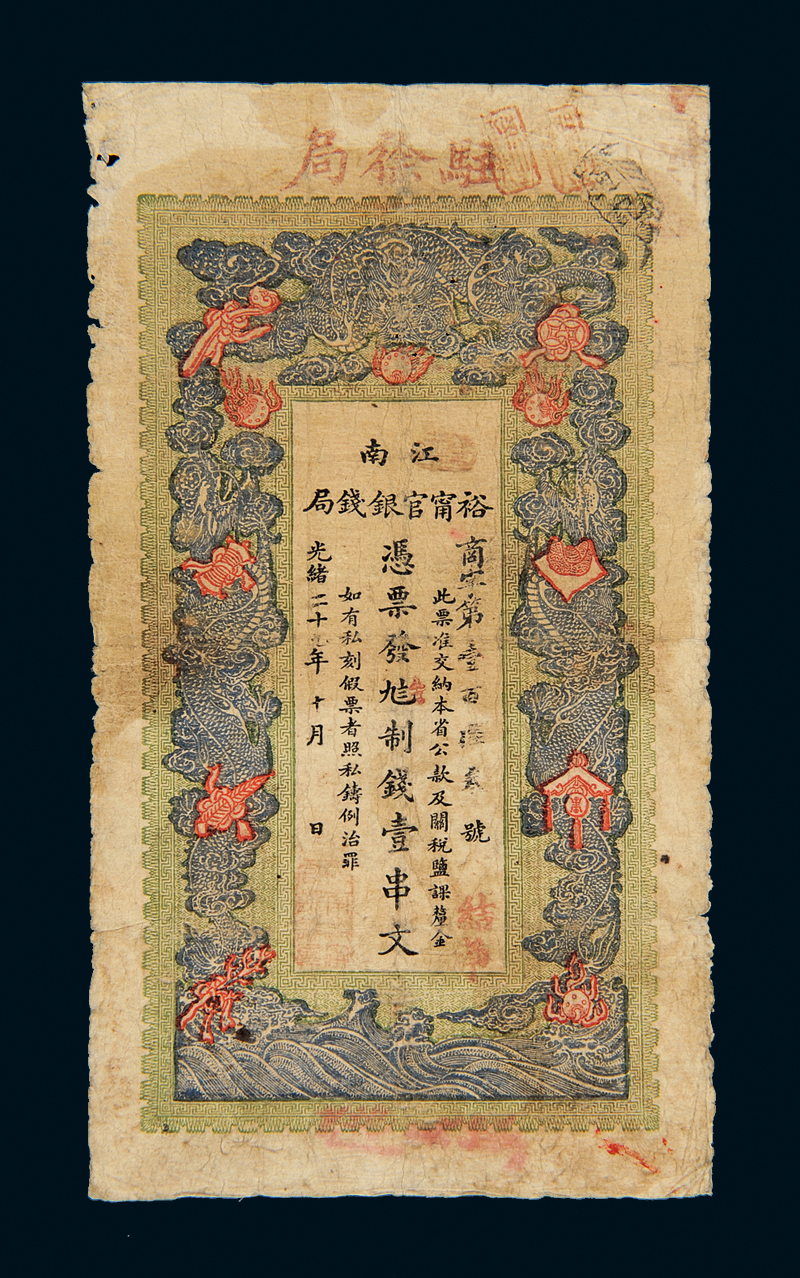 駐徐局
江南
裕甯官銀錢局
商字第壹百號
結
此票准交納本省公款及關稅鹽課釐金
憑票發制錢壹串文
如有私刻假票者照私鑄例治罪
光緒二十年十月日